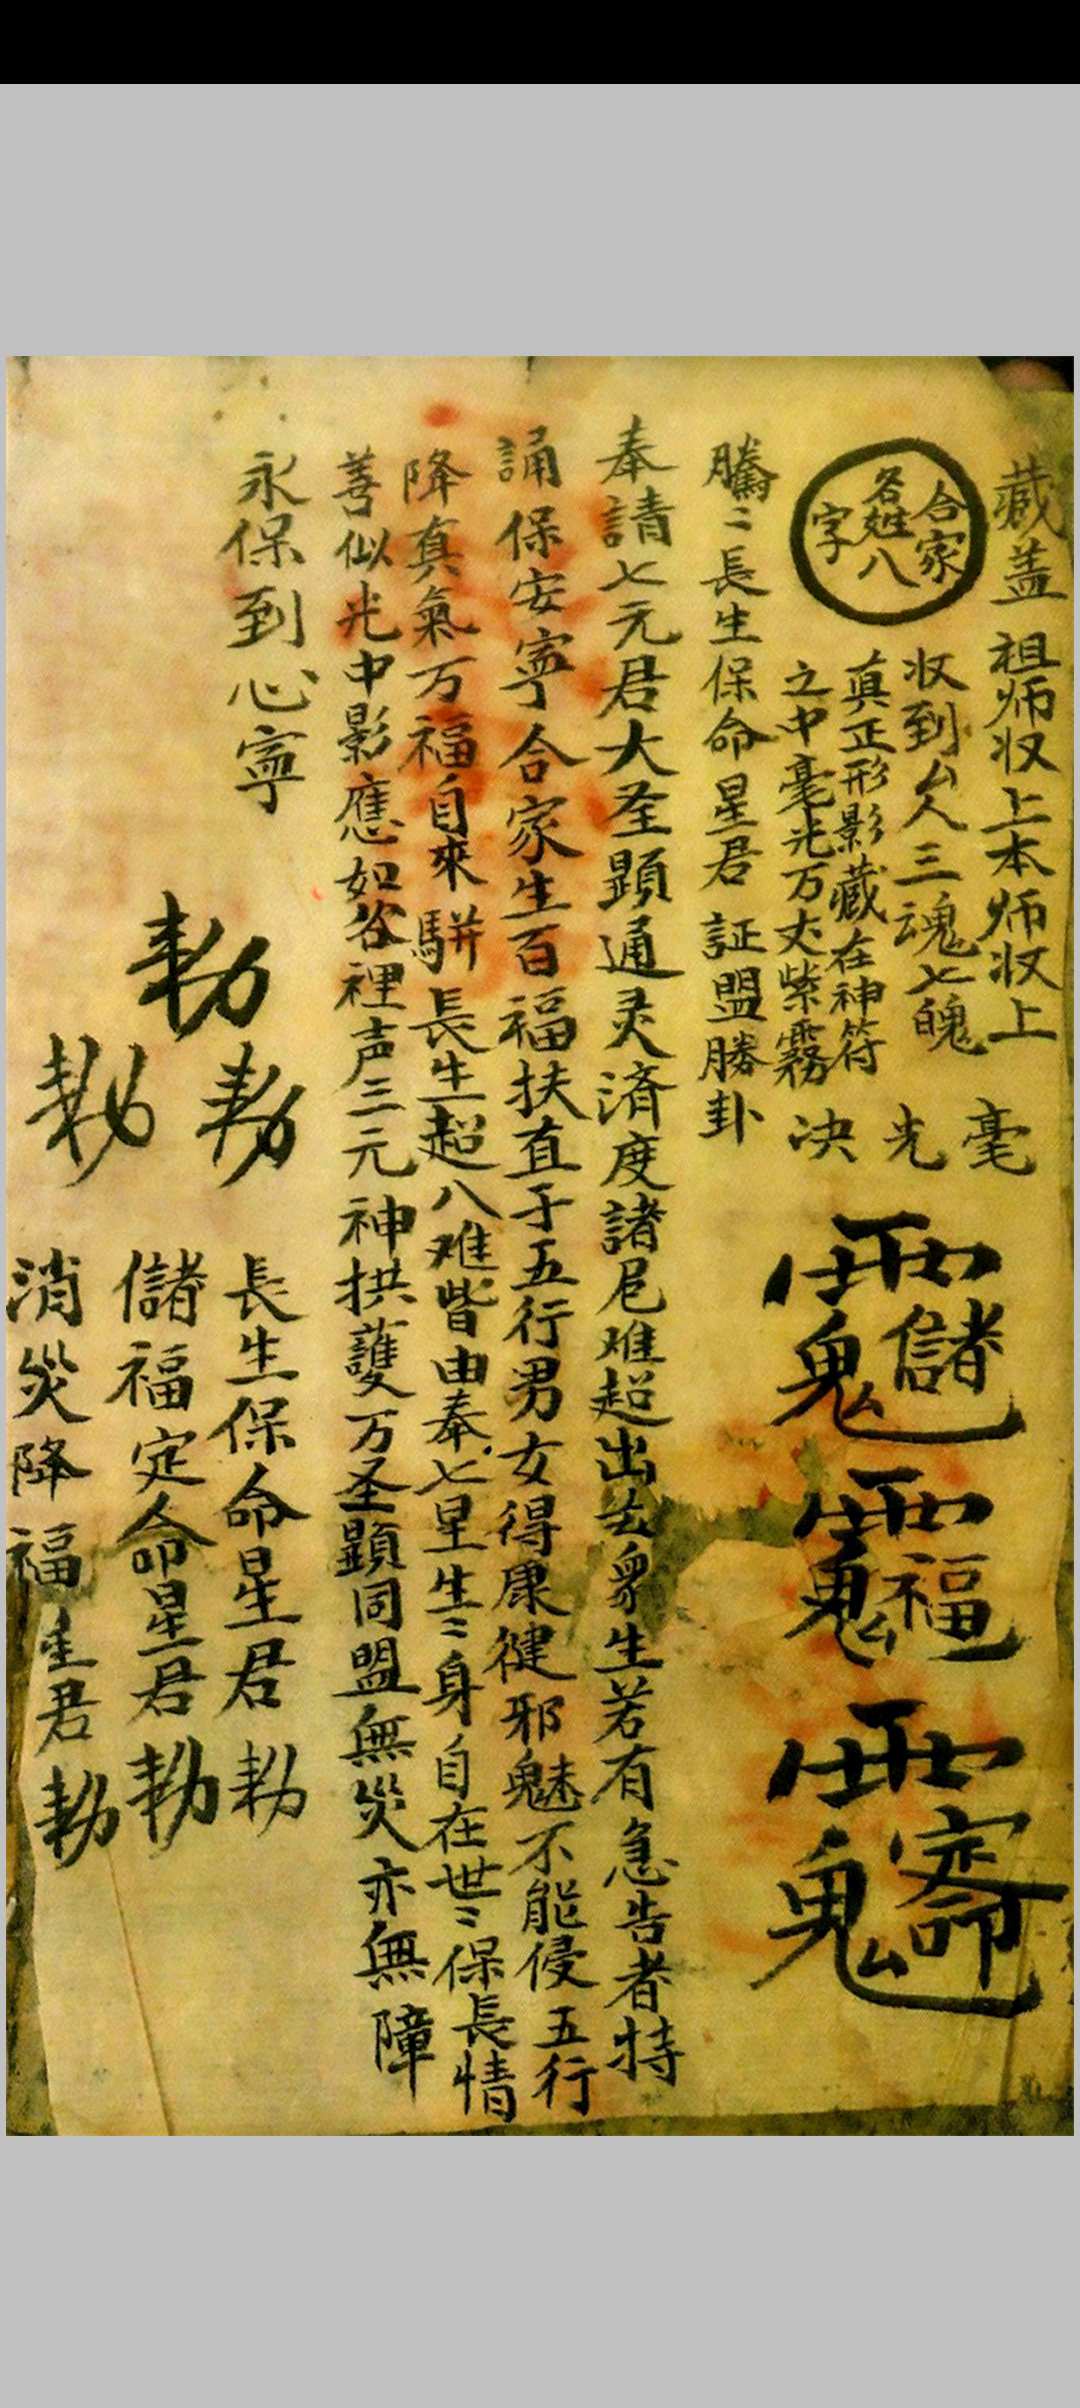 藏盖 祖师收上本师收上
合家
名姓八
字
收到厶人三魂七魄
真正形影藏在神符
之中毫光万丈紫霧
毫光決
儲
福
騰〻長生保命星君 証盟勝卦
奉請七元君大圣顕通灵済度諸厄难超出去衆生若有急告者持
誦保安寧合家生百福扶直于五行男女得康健邪魅不能侵五行
降真氣万福自來駢長生超八难皆由奉七星生〻身自在世〻保長情
善似光中影應如谷裡声三元神拱護万圣顕同盟無災亦無障
永保到心寧
勅
勅
勅
長生保命星君勅
儲福定命星君勅
消災降福星君勅